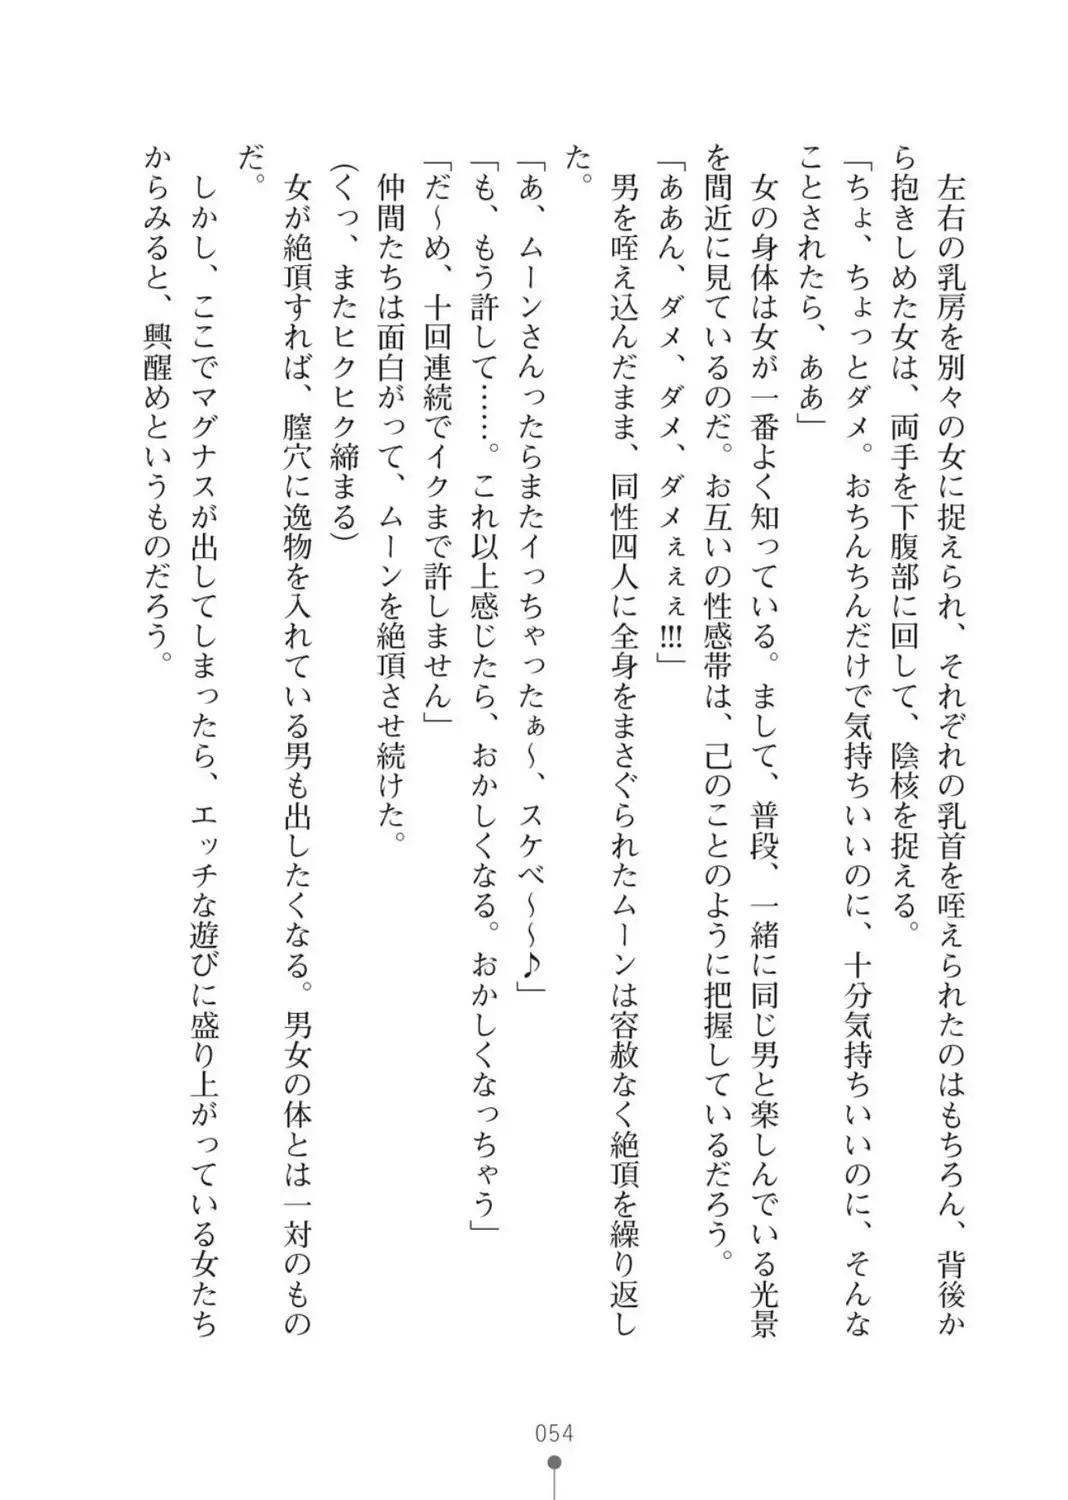 左右の乳房を別々の女に捉えられ、それぞれの乳首を咥えられたのはもちろん、背後か
ら抱きしめた女は、両手を下腹部に回して、陰核を捉える。
「ちょ、ちょっとダメ。おちんちんだけで気持ちいいのに、十分気持ちいいのに、そんな
ことされたら、ああ」
　女の身体は女が一番よく知っている。まして、普段、一緒に同じ男と楽しんでいる光景
を間近に見ているのだ。お互いの性感帯は、己のことのように把握しているだろう。
「ああん、ダメ、ダメ、ダメぇぇぇ!!!」
　男を咥え込んだまま、同性四人に全身をまさぐられたムーンは容赦なく絶頂を繰り返し
た。
「あ、ムーンさんったらまたイっちゃったぁ～、スケベ～～♪」
「も、もう許して……。これ以上感じたら、おかしくなる。おかしくなっちゃう」
「だ～め、十回連続でイクまで許しません」
　仲間たちは面白がって、ムーンを絶頂させ続けた。
（くっ、またヒクヒク締まる）
　女が絶頂すれば、膣穴に逸物を入れている男も出したくなる。男女の体とは一対のもの
だ。
　しかし、ここでマグナスが出してしまったら、エッチな遊びに盛り上がっている女たち
からみると、興醒めというものだろう。
054